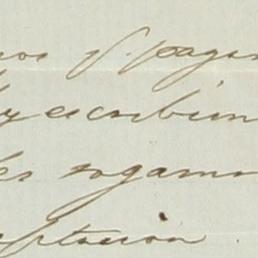 nos p. pagar
y escribim
les rogamo
eptacion.